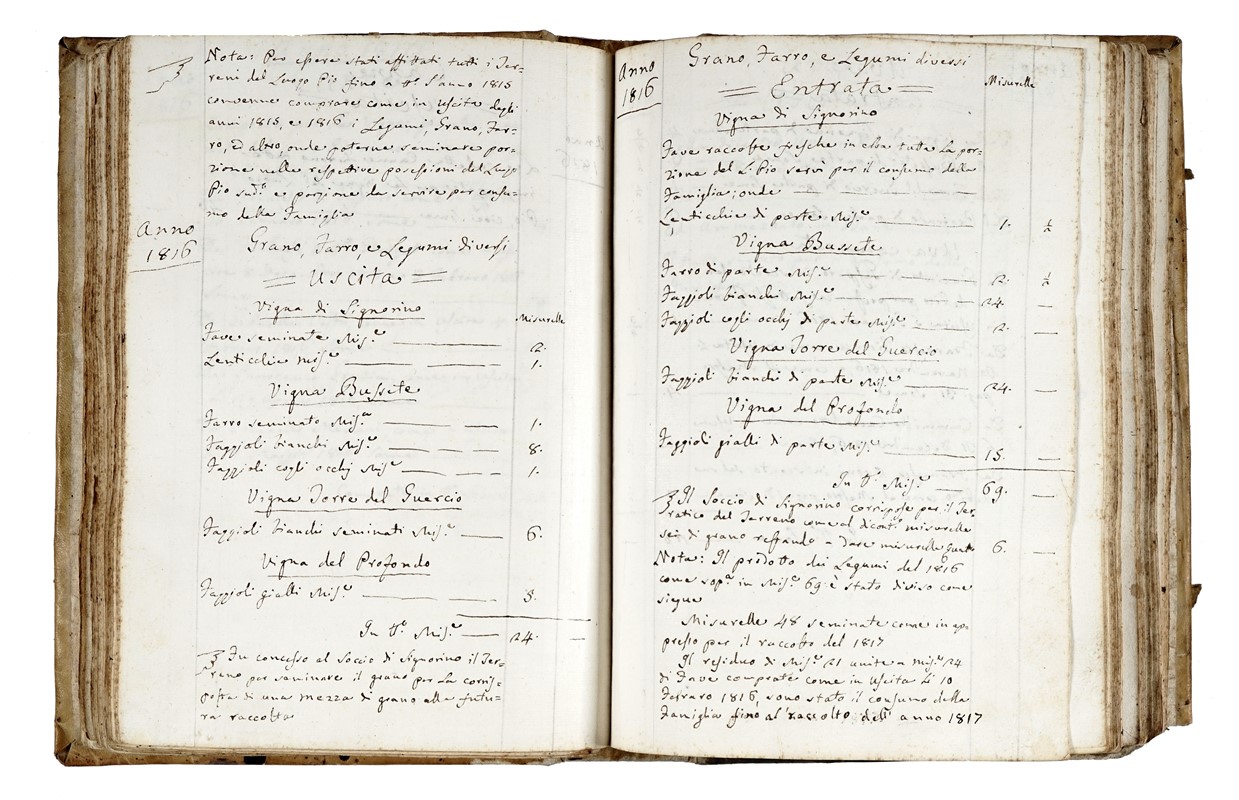 Nota: Per essere stati affittati tutti i Ter=
reni del Luogo Pio fino a tt.º l'anno 1815
convenne comprare come in uscita degli
anni 1815, e 1816 i Legumi, Grano, Far=
ro, ed altro, onde poterne seminare por=
zione nelle rispettive possessioni del Luogo
Pio sud.º e porzione da servire per consu=
mo della Famiglia
Anno
1816
Grano, Farro, e Legumi diversi
= Uscita =
Vigna di Signorino
Misurelle
Fave seminate Mis.e 2.
Lenticchie mis.e 1.
Vigna Bussete
Farro seminato Mis.a 1.
Faggioli bianchi Mis.e 8.
Faggioli cogli occhj Mis.e 1.
Vigna Torre del Guercio
Faggioli bianchi seminati Mis.e 6.
Vigna del Profondo
Faggioli gialli Mis.e 5.
In tt.º Mis.e 24. —
Fu concesso al Soccio di Signorino il Ter=
reno per seminare il grano per la corris=
posta di una mezza di grano alla futu=
ra raccolta
Anno
1816
Grano, Farro, e Legumi diversi
= Entrata =
Misurelle
Vigna di Signorino
Fave raccolte fresche in erba tutta la por=
zione del L. Pio servì per il consumo della
Famiglia; onde — — —
Lenticchie di parte Mis.e 1. ½
Vigna Bussete
Farro di parte Mis.e 2. ½
Faggioli bianchi Mis.e 24. —
Faggioli cogli occhj di parte Mis.e 2. —
Vigna Torre del Guercio
Faggioli bianchi di parte Mis.e 24. —
Vigna del Profondo
Faggioli gialli di parte Mis.e 15. —
In tt.º Mis.e 69. —
Il Soccio di Signorino corrispose per il Ter=
ratico del Terreno come al di cont.º misurelle
sei di grano restando a dare misurelle 6. —
Nota: Il prodotto dei Legumi del 1816
come sop.a in Mis.e 69 è stato diviso come
siegue
Misurelle 48 seminate come in ap=
presso per il raccolto del 1817
Il residuo di Mis.e 21 unite a mis.e 24
di Fave comprate come in uscita li 10
Febraro 1816, sono stato il consumo della
Famiglia fino al raccolto dell' anno 1817